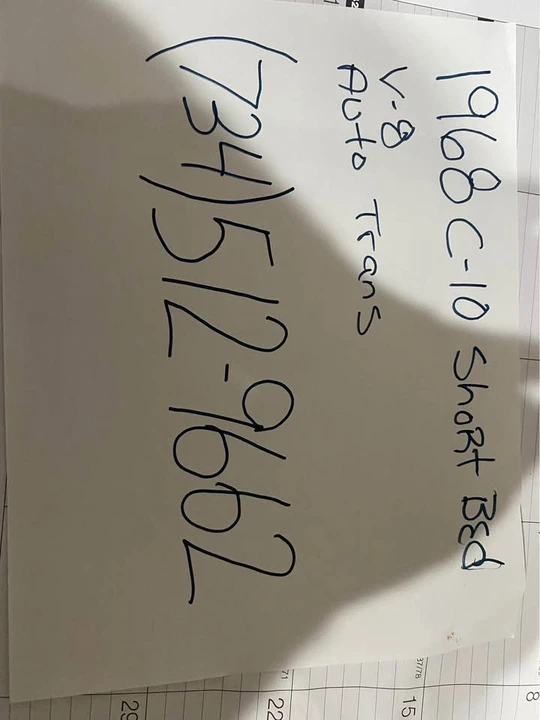 1968 C-10 ShoRt BEd
V-8
Auto Trans
(734) 512-9662
8
15
22
29
3778
71